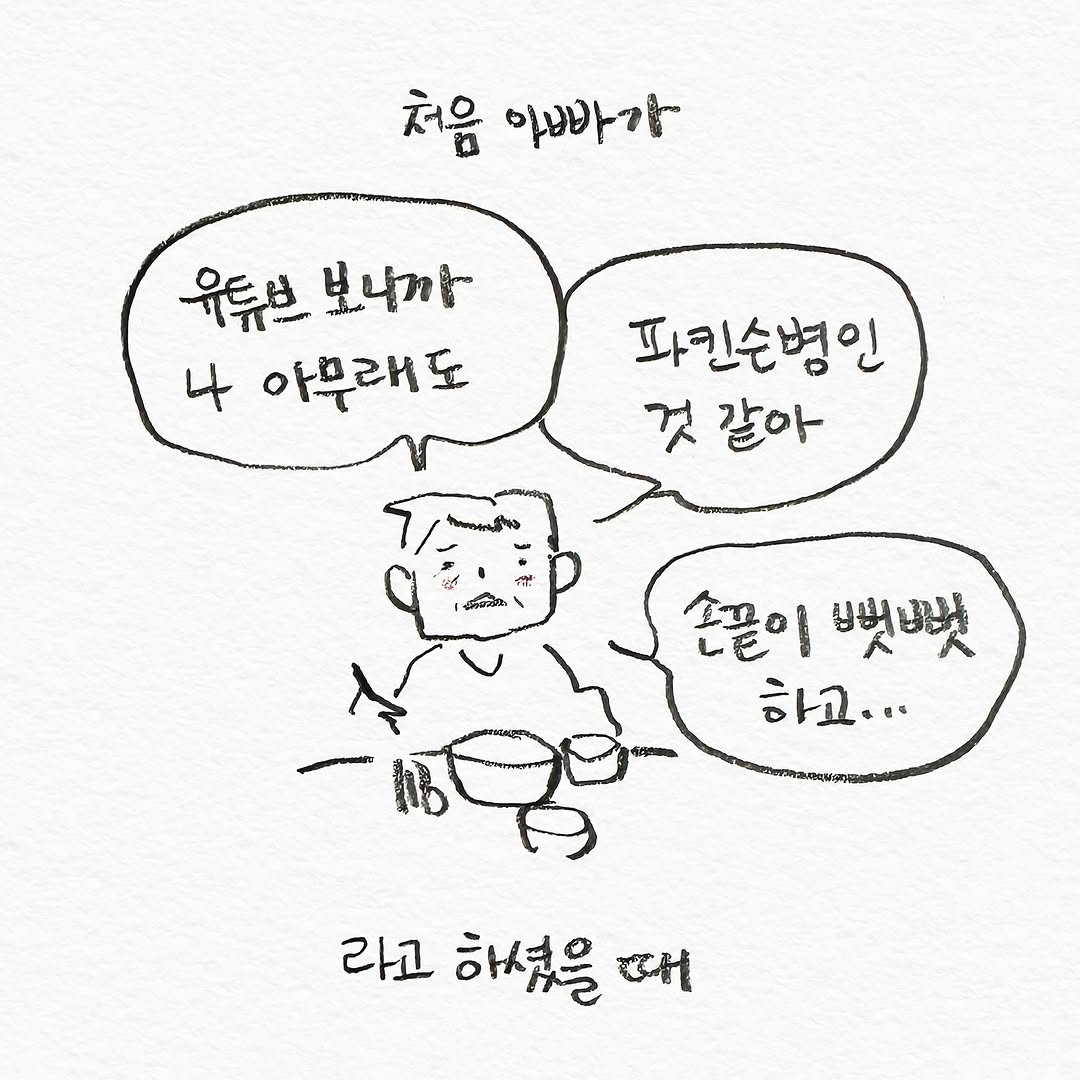 처음 아빠가
유튜브 보니까
나 아무래도
파킨슨병인
것 같아
손끝이 뻣뻣
하고...
라고 하셨을 때